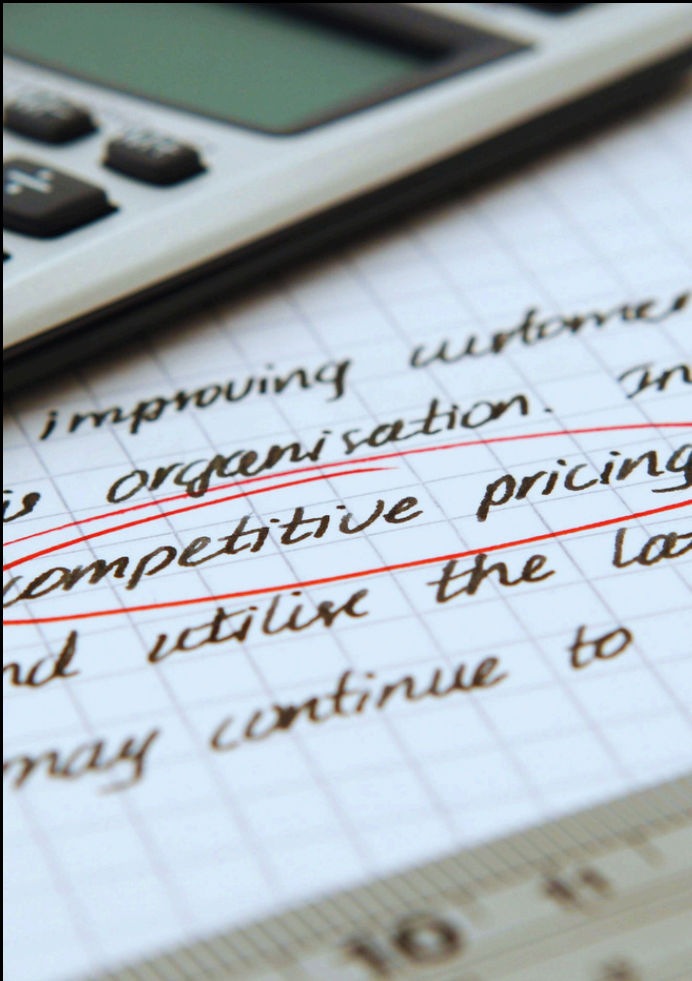 OFF
÷
improving customer
is organisation. In
competitive pricing
nd utilise the lat
may continue to
10 11